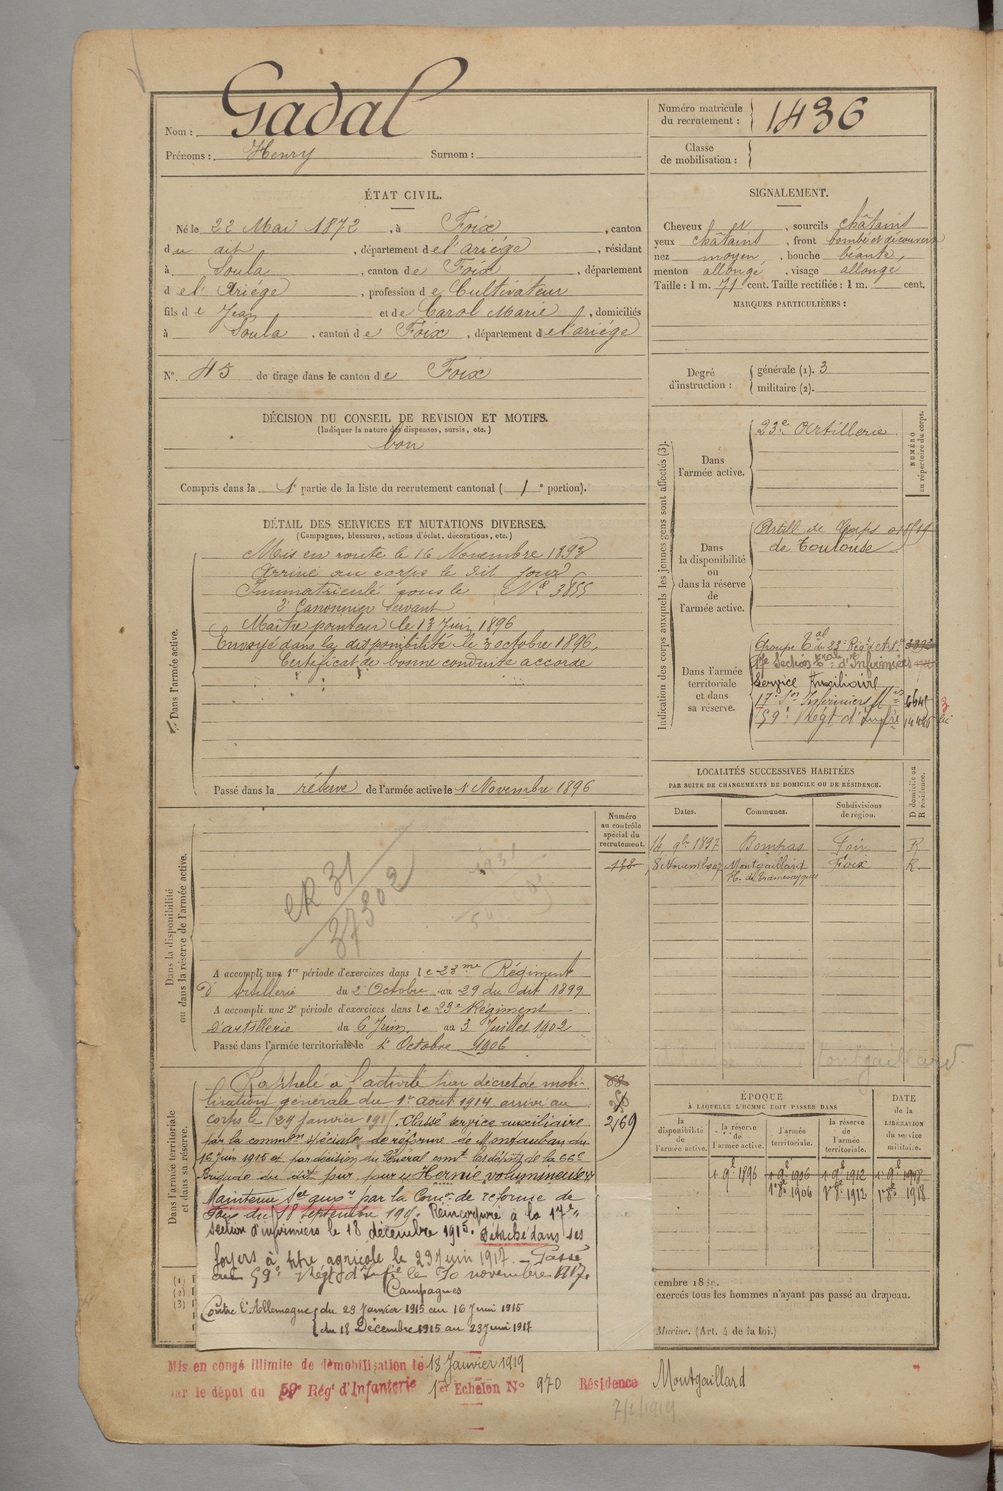 Nom : Gadal
Prénoms : Henry Surnom :
Numéro matricule du recrutement : 1436
Classe de mobilisation :
ÉTAT CIVIL.
Né le 22 Mai 1872, à Foix, canton
du dit, département de l'ariège, résidant
à Soula, canton de Foix, département
de l'Ariège, profession de Cultivateur
fils de Jean et de Carol Marie, domiciliés
à Soula, canton de Foix, département de l'ariège
N° 45 de tirage dans le canton de Foix
SIGNALEMENT.
Cheveux et, sourcils châtains
yeux châtains, front bombé et découvert
nez moyen, bouche béante,
menton allongé, visage allongé
Taille : 1 m. 71 cent. Taille rectifiée : 1 m. cent.
MARQUES PARTICULIÈRES :
Degré d'instruction : générale (1). 3
militaire (2).
DÉCISION DU CONSEIL DE REVISION ET MOTIFS.
(Indiquer la nature des dispenses, sursis, etc.)
bon
Compris dans la 1e partie de la liste du recrutement cantonal (1e portion).
DÉTAIL DES SERVICES ET MUTATIONS DIVERSES.
(Campagnes, blessures, actions d'éclat, décorations, etc.)
Dans l'armée active.
Mis en route le 16 Novembre 1893
Arrivé au corps le dit jour
Immatriculé sous le N° 3855
2e Canonnier Servant
Maître pointeur le 13 Juin 1896
Envoyé dans la disponibilité le 3 octobre 1896,
Certificat de bonne conduite accordé
Passé dans la réserve de l'armée active le 1 Novembre 1896
Indication des corps auxquels les jeunes gens sont affectés (3).
NUMÉRO au répertoire du corps.
Dans l'armée active.
23e Artillerie
Dans la disponibilité ou dans la réserve de l'armée active.
Artill de Corps
de Toulouse
Dans l'armée territoriale et dans sa réserve.
Groupe tal du 23e Régt d'Artie
17e Section tale d'Infirmiers
Service Auxiliaire
17e Son Infirmiers Mres
59e Régt d'Infie
LOCALITÉS SUCCESSIVES HABITÉES
PAR SUITE DE CHANGEMENTS DE DOMICILE OU DE RÉSIDENCE.
Dates. Communes. Subdivisions de région. D domicile ou R résidence.
14 9bre 1897 Bompas Foix R
8 Novembre 07 Montgaillard Foix R
Dans la disponibilité ou dans la réserve de l'armée active.
Numéro au contrôle spécial du recrutement.
138
ER 31
37302
A accompli une 1re période d'exercices dans le 23me Régiment
D'Artillerie du 2 Octobre au 29 du dit 1899
A accompli une 2e période d'exercices dans le 23e Régiment
D'artillerie du 6 Juin au 3 Juillet 1902
Passé dans l'armée territoriale le 1 Octobre 1906
Dans l'armée territoriale et dans sa réserve.
Rappelé à l'activité par décret de mobi-
lisation générale du 1er Août 1914 arrivé au
corps le 29 janvier 1915. Classé service auxiliaire
par la common spéciale de réforme de Montauban du
16 juin 1915 et par décision du Général comt les dépôts de la 66e
Brigade du dit jour pour "Hernie volumineuse"
Maintenu Sce auxre par la Comon de réforme de
Foix du 18 septembre 1915. Réincorporé à la 17e
section d'infirmiers le 18 décembre 1915. Détaché dans ses
foyers à titre agricole le 23 Juin 1917. Passé
au 59e Régt d'Infie le 30 novembre 1917.
Campagnes
Contre l'Allemagne du 29 Janvier 1915 au 16 Juin 1915
du 18 Décembre 1915 au 23 Juin 1917
2/69
ÉPOQUE
À LAQUELLE L'HOMME DOIT PASSER DANS
la disponibilité de l'armée active. la réserve de l'armée active. l'armée territoriale. la réserve de l'armée territoriale.
DATE de la LIBÉRATION du service militaire.
embre 18
exercés tous les hommes n'ayant pas passé au drapeau.
Marine. (Art. 4 de la loi.)
Mis en congé illimité de démobilisation le 18 Janvier 1919
par le dépôt du 59e Régt d'Infanterie 1er Echelon N° 970 Résidence Montgaillard